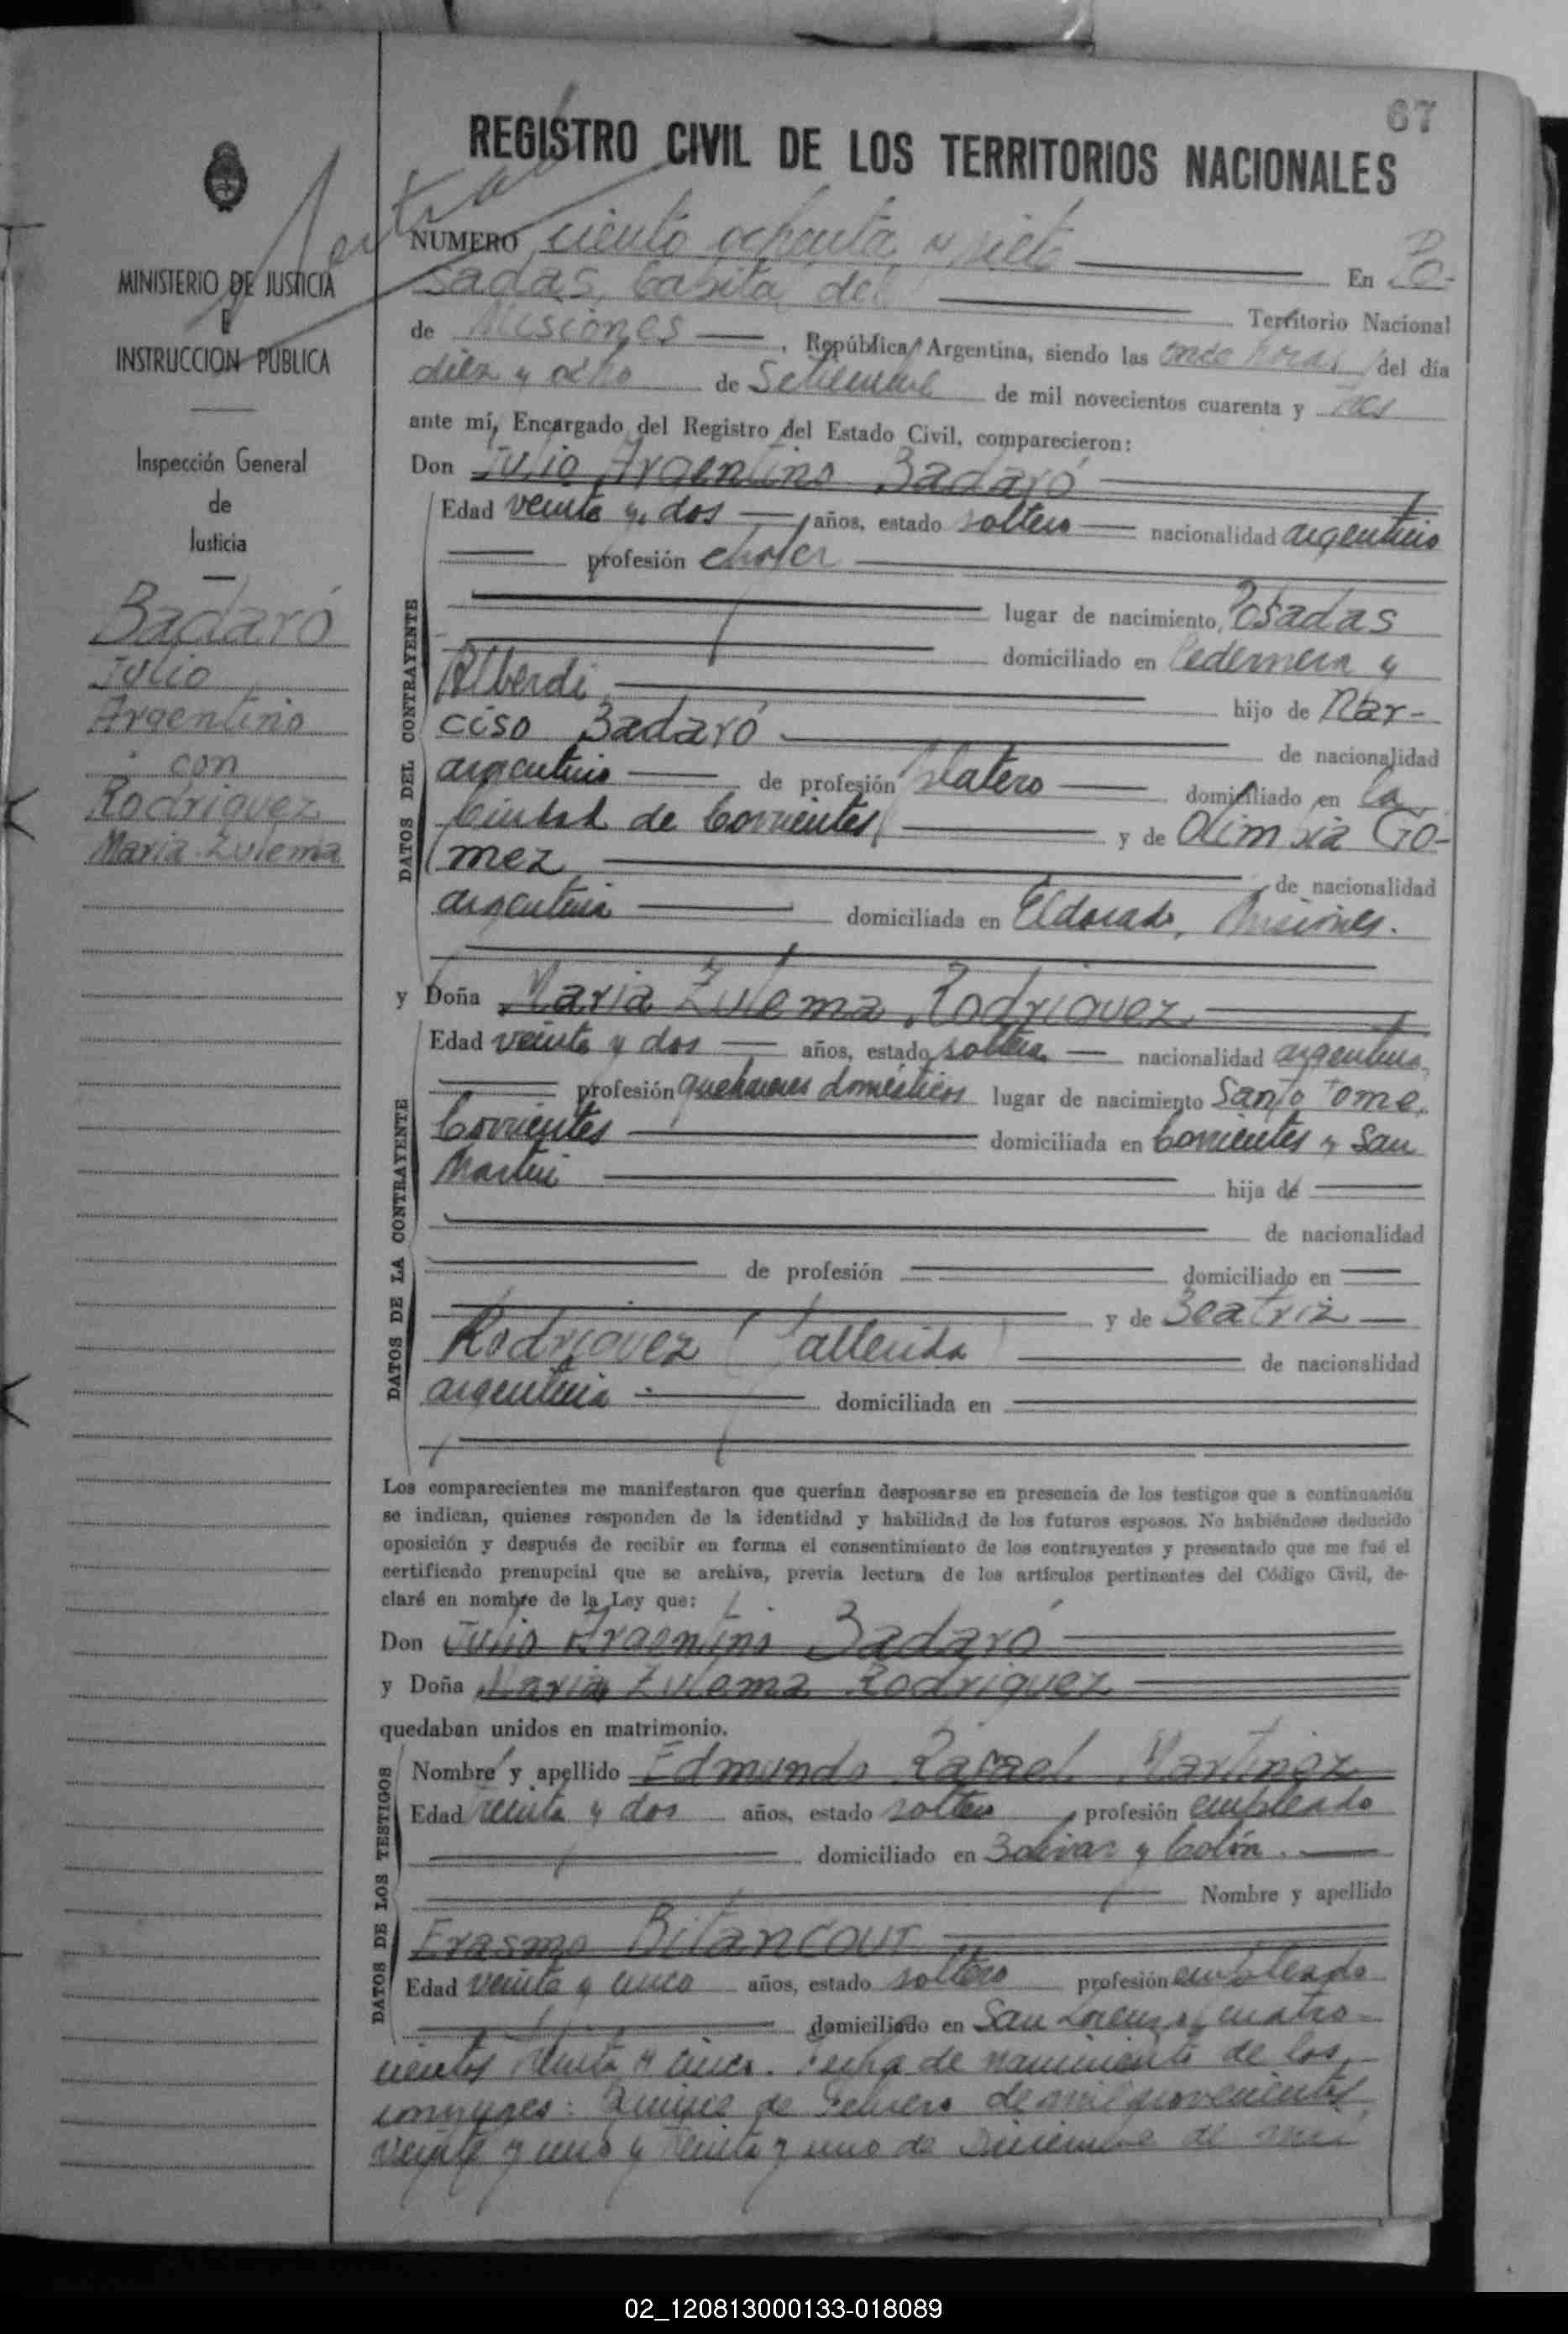 67
REGISTRO CIVIL DE LOS TERRITORIOS NACIONALES
MINISTERIO DE JUSTICIA
E
INSTRUCCION PUBLICA
Inspección General
de
Justicia
Badaró
Julio
Argentino
con
Rodriguez
Maria Zulema
NUMERO ciento ochenta y siete En Po-
sadas, Capital del Territorio Nacional
de Misiones, República Argentina, siendo las once horas del día
diez y ocho de Setiembre de mil novecientos cuarenta y tres
ante mí, Encargado del Registro del Estado Civil, comparecieron:
Don Julio Argentino Badaró
Edad veinte y dos años, estado soltero nacionalidad argentino
profesión chofer
DATOS DEL CONTRAYENTE
lugar de nacimiento Posadas
domiciliado en Pedernera y
Alberdi hijo de Nar-
ciso Badaró de nacionalidad
argentino de profesión platero domiciliado en la
Ciudad de Corrientes y de Olimpia Gó-
mez de nacionalidad
argentina domiciliada en Eldorado, Misiones.
y Doña Maria Zulema Rodriguez
Edad veinte y dos años, estado soltera nacionalidad argentina,
profesión quehaceres domésticos lugar de nacimiento Santo Tome,
Corrientes domiciliada en Corrientes y San
Martin hija de
DATOS DE LA CONTRAYENTE
de nacionalidad
de profesión domiciliado en
y de Beatriz
Rodriguez (fallecida) de nacionalidad
argentina domiciliada en
Los comparecientes me manifestaron que querían desposarse en presencia de los testigos que a continuación
se indican, quienes responden de la identidad y habilidad de los futuros esposos. No habiéndose deducido
oposición y después de recibir en forma el consentimiento de los contrayentes y presentado que me fué el
certificado prenupcial que se archiva, previa lectura de los artículos pertinentes del Código Civil, de-
claré en nombre de la Ley que:
Don Julio Argentino Badaró
y Doña Maria Zulema Rodriguez
quedaban unidos en matrimonio.
DATOS DE LOS TESTIGOS
Nombre y apellido Edmundo Rafael Martinez
Edad treinta y dos años, estado soltero profesión empleado
domiciliado en Bolivar y Colón.
Nombre y apellido
Erasmo Bitancourt
Edad veinte y cinco años, estado soltero profesión empleado
domiciliado en San Lorenzo cuatro-
cientos treinta y cinco. Fecha de nacimiento de los
conyuges: Quince de Febrero de mil novecientos
veinte y uno y treinta y uno de Diciembre de mil
02_120813000133-018089